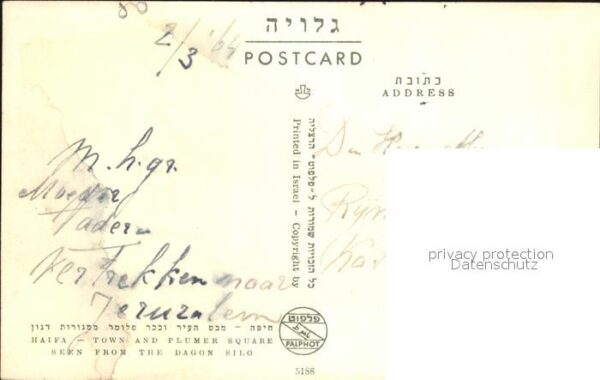 גלויה
POSTCARD
2/3 '64
כתובת
ADDRESS
M. h. gr.
Moeder
Vader
Vertrekken naar
Jeruzalem
Den
כל הזכויות שמורות ל-פלפוט - הרצליה
Printed in Israel - Copyright by
privacy protection
Datenschutz
פלפוט
PALPHOT
חיפה - מבט העיר וככר פלומר ממגורות דגון
HAIFA - TOWN AND PLUMER SQUARE
SEEN FROM THE DAGON SILO
5188